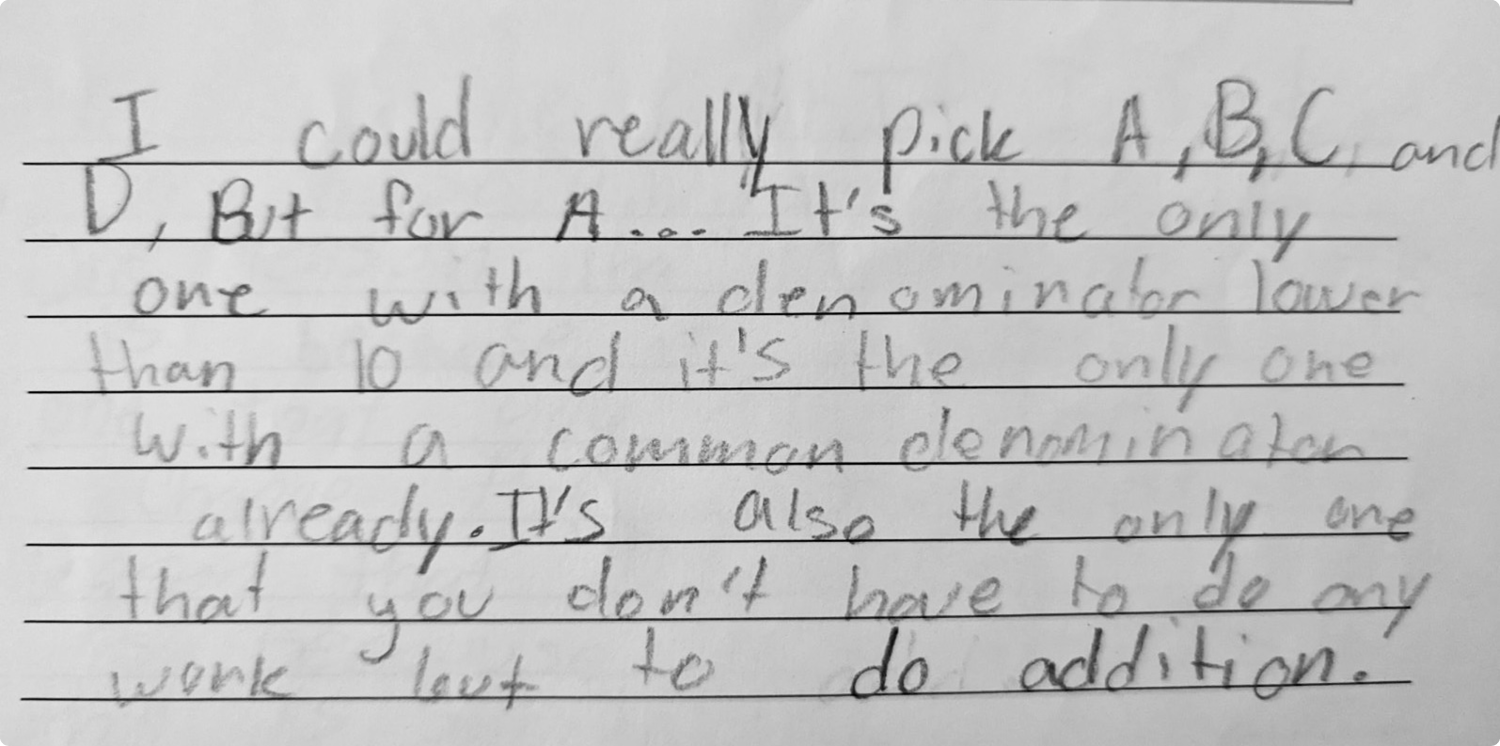 I could really pick A, B, C, and
D, But for A... It's the only
one with a denominator lower
than 10 and it's the only one
with a common denominator
already. It's also the only one
that you don't have to do any
work but to do addition.